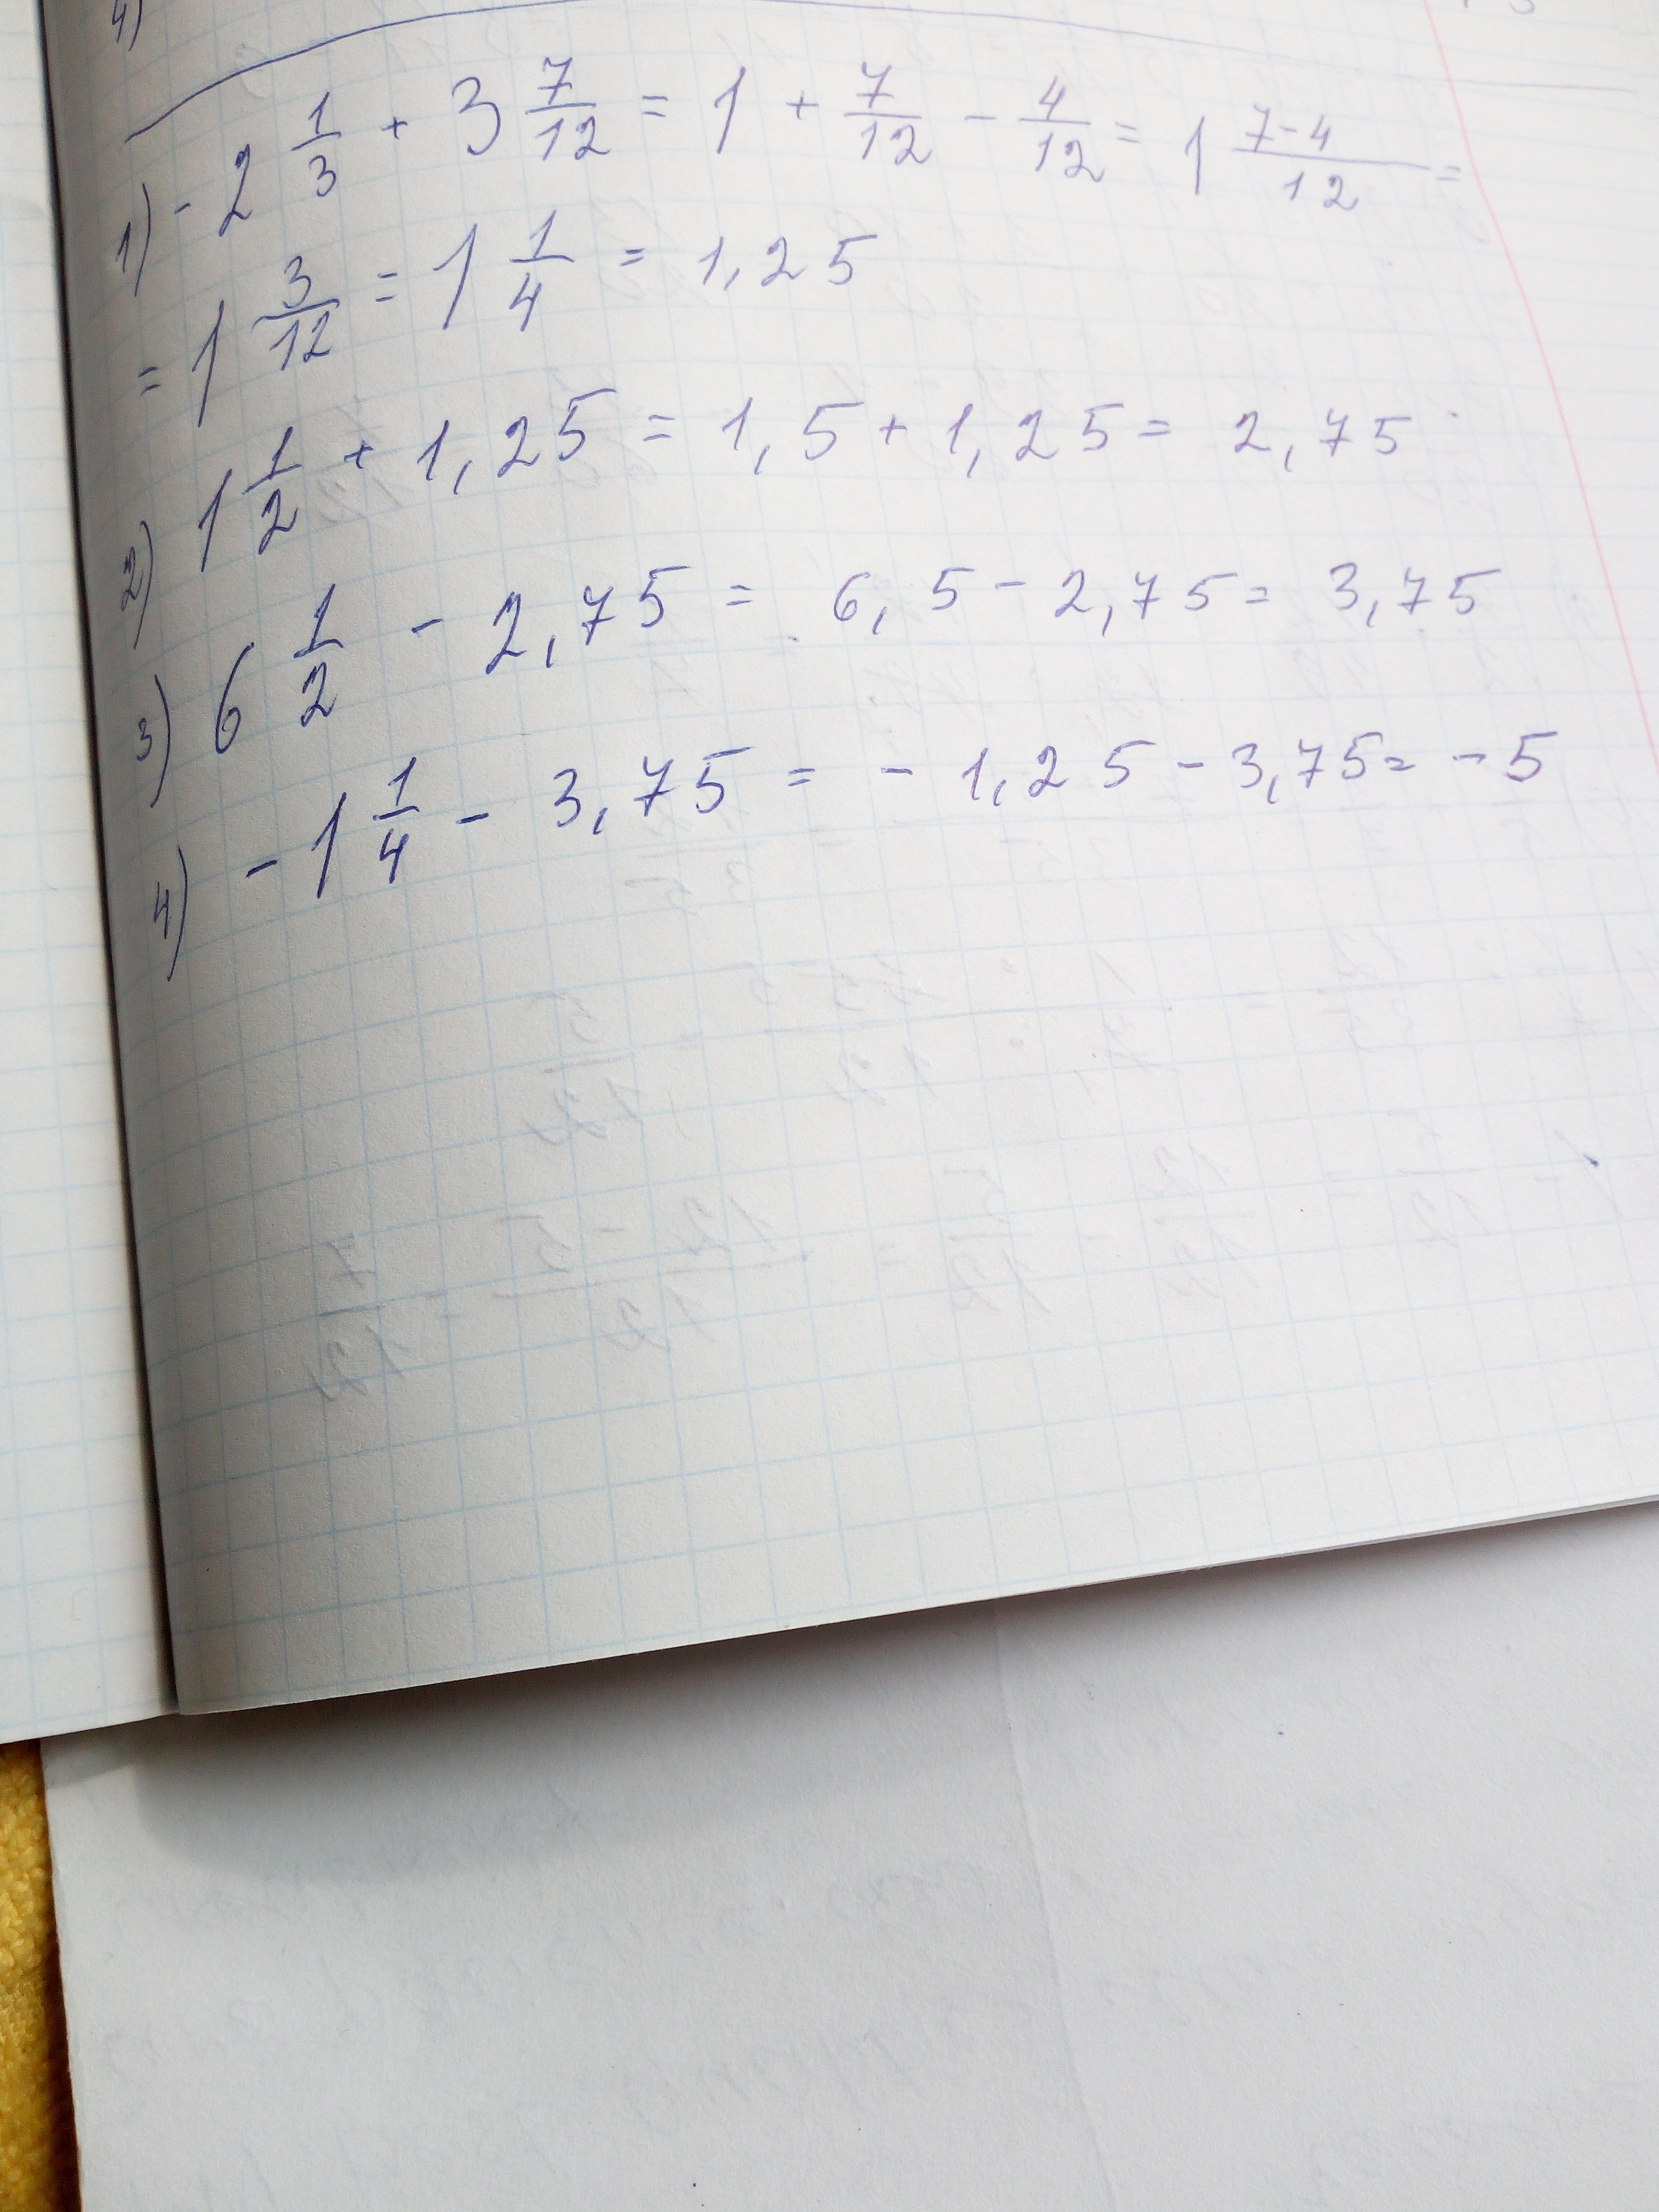 4)
1) - 2 1/3 + 3 7/12 = 1 + 7/12 - 4/12 = 1 (7-4)/12 =
= 1 3/12 = 1 1/4 = 1,25
2) 1 1/2 + 1,25 = 1,5 + 1,25 = 2,75
3) 6 1/2 - 2,75 = 6,5 - 2,75 = 3,75
4) - 1 1/4 - 3,75 = - 1,25 - 3,75 = - 5